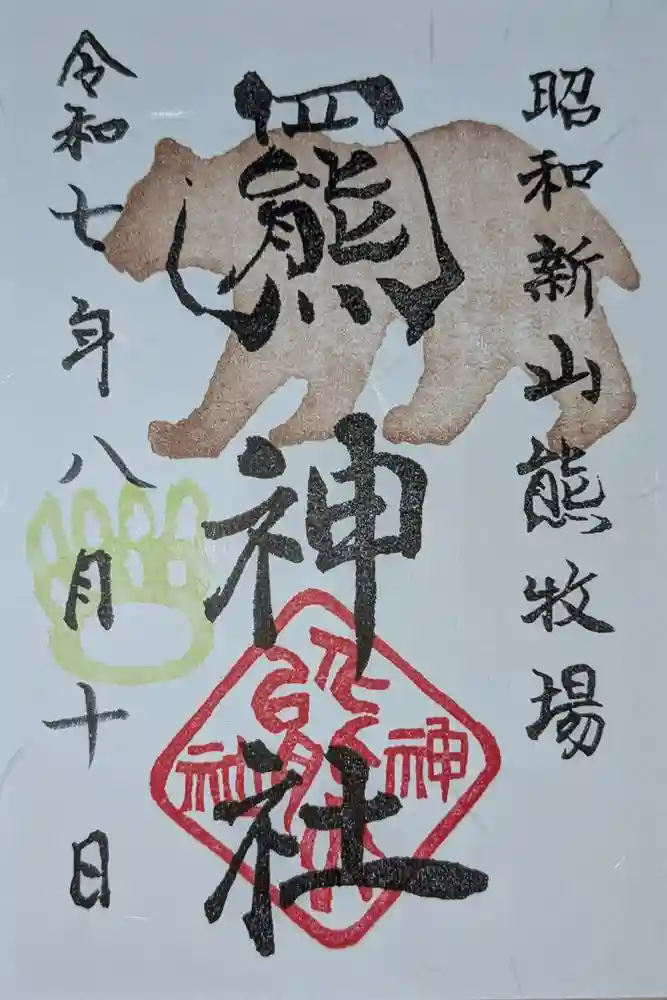 昭和新山熊牧場
羆神社
熊
神
社
令和七年八月十日